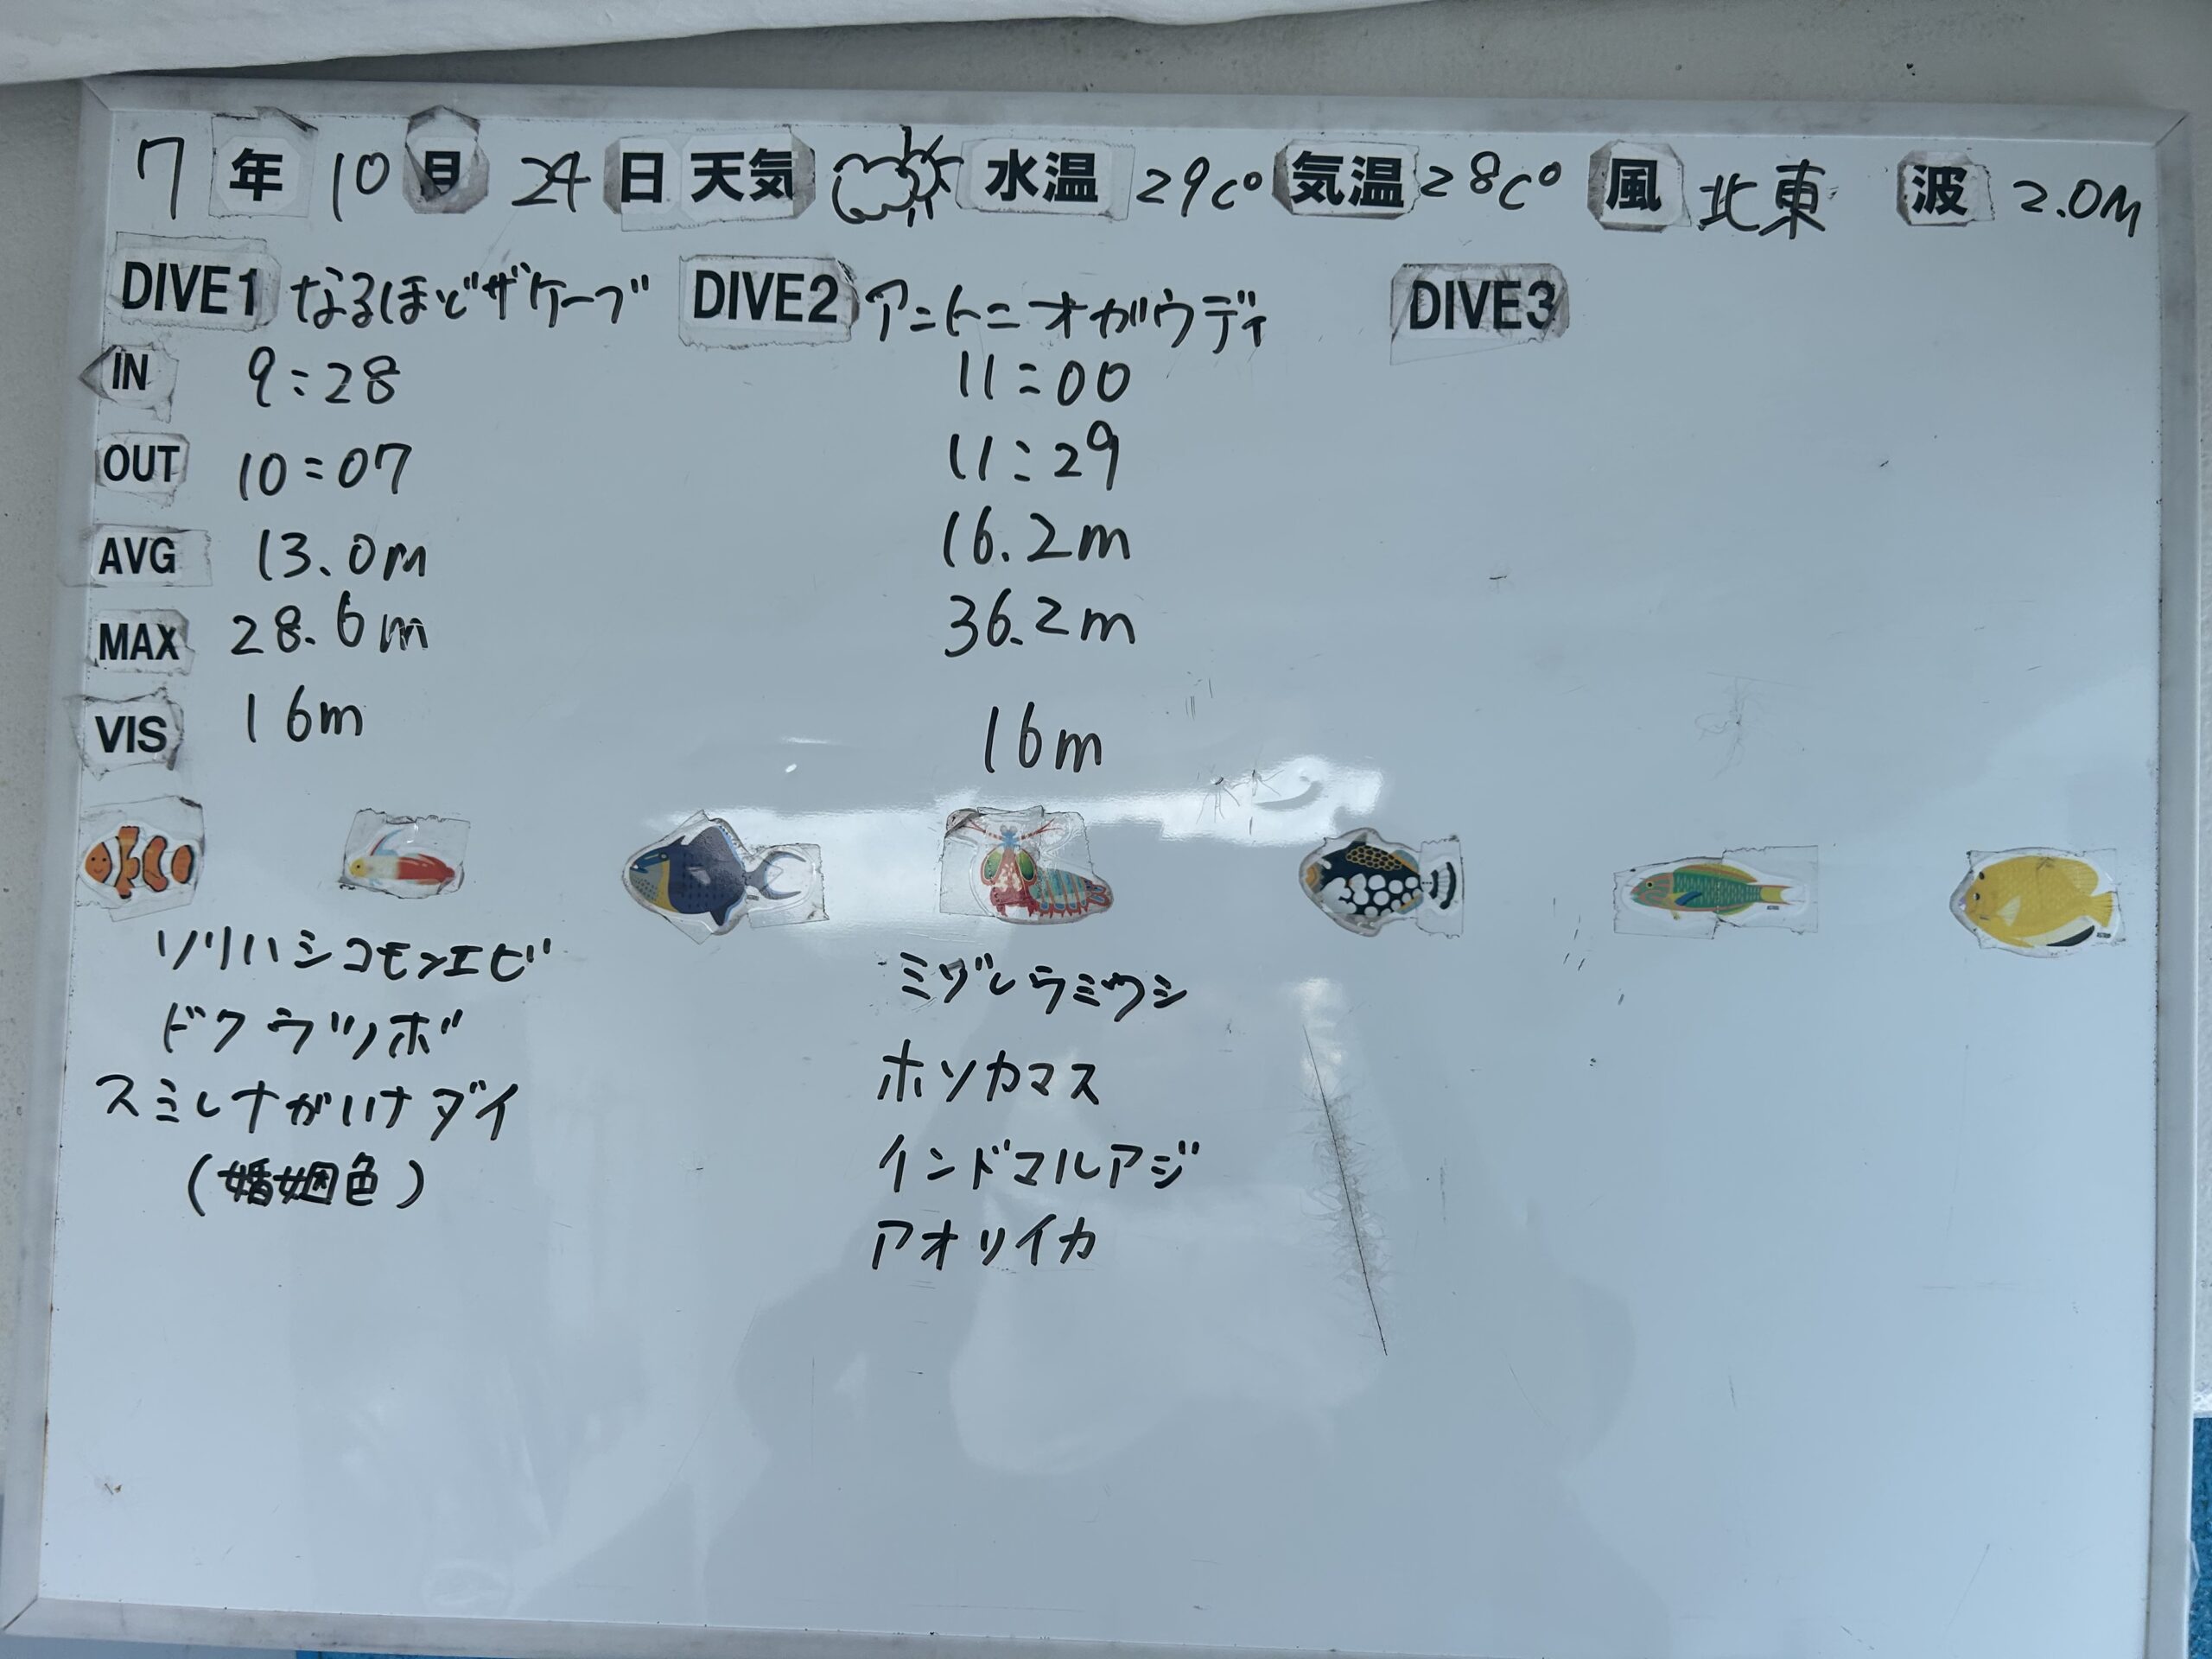 7年 10月 24日 天気 水温 29c° 気温 28c° 風 北東 波 2.0M
DIVE1 なるほどザケーブ DIVE2 アントニオガウディ DIVE3
IN 9:28 11:00
OUT 10:07 11:29
AVG 13.0m 16.2m
MAX 28.6m 36.2m
VIS 16m 16m
ソリハシコモンエビ
ドクウツボ
スミレナガハナダイ
(婚姻色)
ミゾレウミウシ
ホソカマス
インドマルアジ
アオリイカ